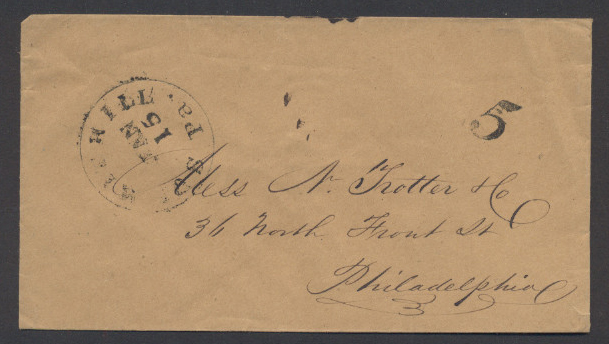 JAN
15
Pa.
5
Mess N. Trotter & Co
36 North Front St
Philadelphia